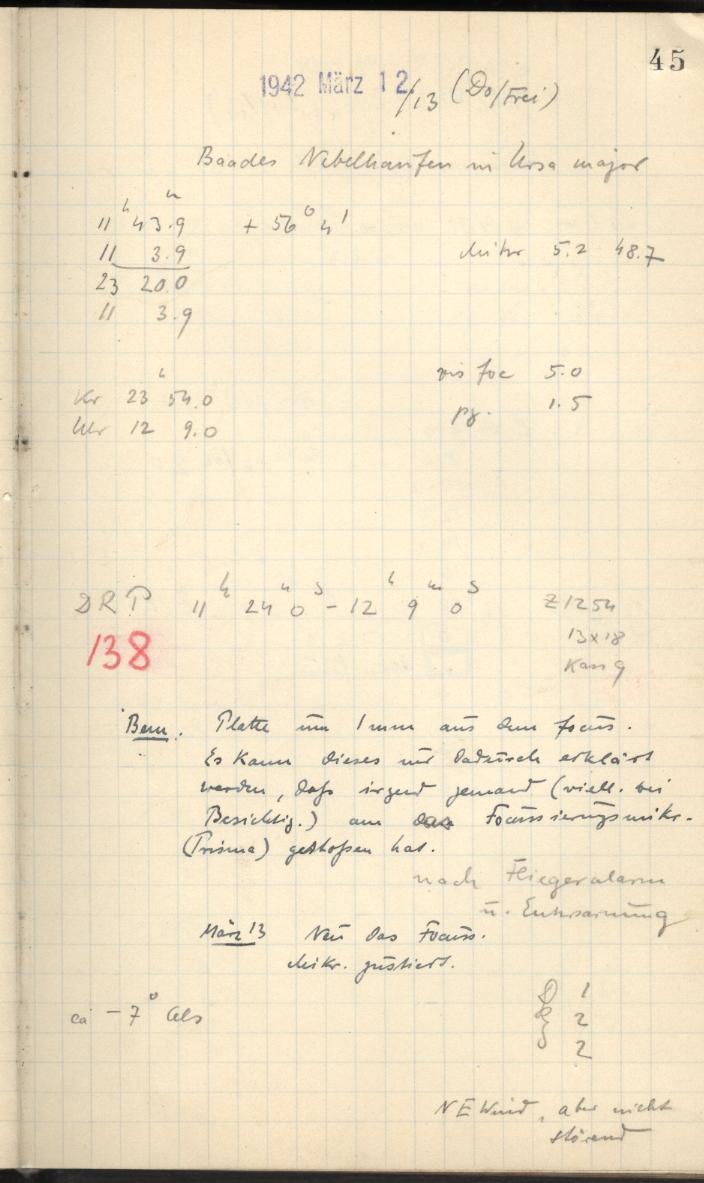 45
1942 März 12/13 (Do/Frei)
Baades Nebelhaufen in Ursa major
11 h 43.9 m + 56° 4'
11 3.9 Mikr 5.2 48.7
23 20 0
11 3.9
vis foc 5.0
Kr 23 h 54.0
pg. 1.5
Uhr 12 9.0
DRP 11 h 24 m 0 s - 12 h 9 m 0 s Z1254
138 13x18
Kass 9
Bem. Platte um 1 mm aus dem focus.
Es kann dieses nur dadurch erklärt
werden, daß irgend jemand (viell. bei
Besichtig.) am das Focussierungsmikr.
(Prisma) gestoßen hat.
nach Fliegeralarm
u. Entwarnung
März 13 Neu das Focuss.
Mikr. justiert.
1
ca -7° Cels
2
2
NE Wind, aber nicht
störend